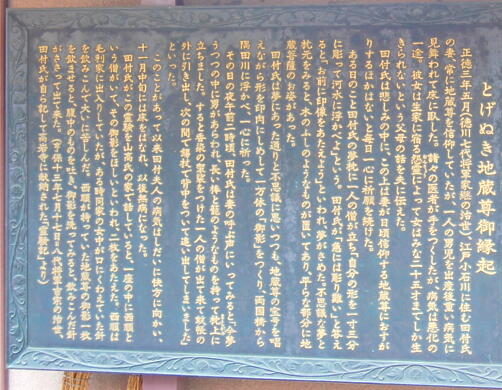 とげぬき地蔵尊御縁起
正徳三年五月(徳川七代将軍家継の治世)江戸小石川に住む田付氏
の妻、常に地蔵尊を信仰していたが、一人の男児を出産後重い病気に
見舞われて床に臥した。諸々の医者が手をつくしたが、病気は悪化の
一途。彼女は生家に宿る怨霊によって女はみな二十五才までしか生
きられないという父母の話を夫に伝えた。
田付氏は悲しみの中に、この上は妻が日頃信仰する地蔵尊におすが
りするほかはないと毎日一心に祈願を続けた。
ある日のこと田付氏の夢枕に一人の僧が立ち「自分の形を一寸三分
に彫って河水に浮かべよ」という。田付氏が「急には彫り難い」と答え
ると、「お前に印像をあたえよう」といわれ、夢がさめた。不思議な夢と
枕元をみると、木のふしのようなものが置いてあり、平らな部分に地
蔵菩薩の御影があった。
田付氏は夢にあった通りと不思議に思いつつも、地蔵尊の宝号を唱
えながら形を印肉にしめして一万体の「御影」をつくり、両国橋から
隅田川に浮かべ、一心に祈った。
その日の夜半前二時頃、田付氏は妻の呼ぶ声にいってみると、「今夢
うつつの中に男があらわれ、長い棒と籠のようなものを持って枕上に
立ちました。すると香染の聖衣をつけた一人の僧が出て来て蚊帳の
外に引き出し、次の間で錫杖で背中をついて追い出してしまいました」
といった。
このことがあって以来田付夫人の病気はしだいに快方に向かい、
十一月中旬には床をはなれ、以後無病になった。
田付氏がこの霊験を山高氏の家で話していると、一座の中に西順と
いう僧がいて、その御影をほしいといわれ、二枚をあたえた。西順は
毛利家に出入りしていたが、ある時同家の女中が口にくわえていた針
を飲みこんで大いに苦しんだ。西順は持っていた地蔵尊の御影一枚
を飲ませると、腹中のものを吐き、御影を洗ってみると、飲みこんだ針
がささって出て来た。(享保十三年七月十七日=八代将軍吉宗の治世、
田付氏が自ら記して高岩寺に献納された「霊験記」より)